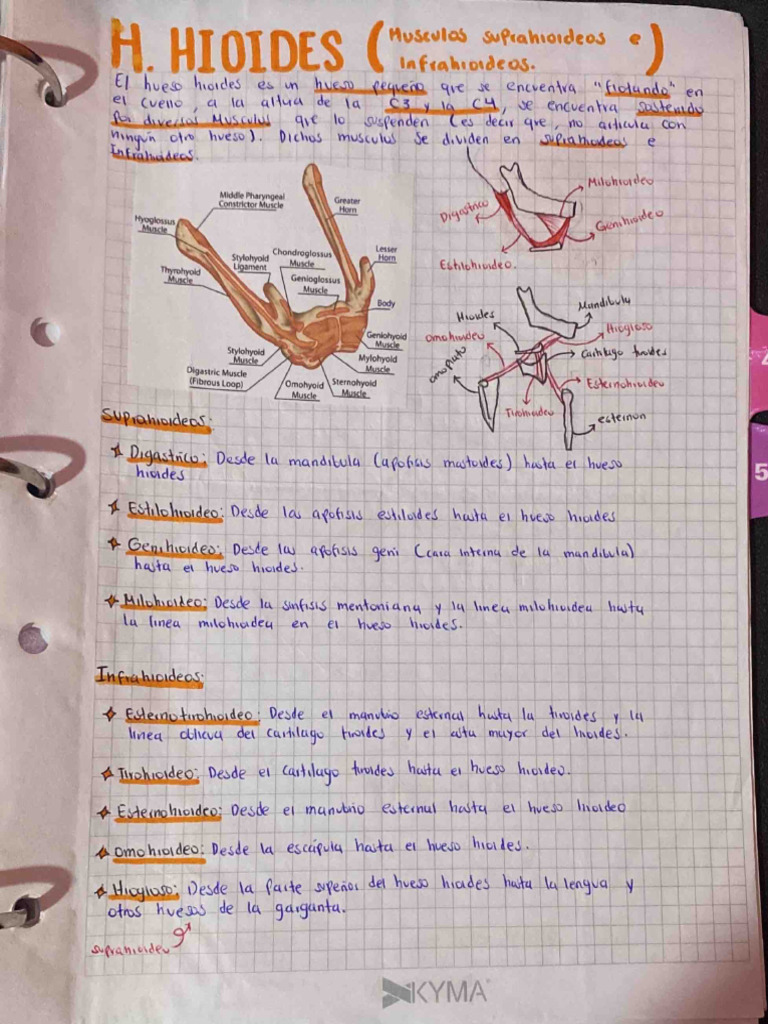 H. HIOIDES (Musculos suprahioideos e
Infrahioideos.)
El hueso hioides es un hueso pequeño que se encuentra "flotando" en
el cuello, a la altura de la C3 y la C4, se encuentra sostenido
por diversos Musculos que lo suspenden (es decir que, no articula con
ningún otro hueso). Dichos musculos se dividen en suprahioideos e
Infrahioideos.
Middle Pharyngeal
Constrictor Muscle
Greater
Horn
Hyoglossus
Muscle
Stylohyoid
Ligament
Chondroglossus
Muscle
Lesser
Horn
Thyrohyoid
Muscle
Genioglossus
Muscle
Body
Geniohyoid
Muscle
Stylohyoid
Muscle
Mylohyoid
Muscle
Digastric Muscle
(Fibrous Loop)
Omohyoid
Muscle
Sternohyoid
Muscle
Milohioideo
Digastrico
Genihioideo
Estilohioideo.
Hioides
Mandibula
Hiogloso
omohioideo
Cartilago tiroides
omoplato
Esternohioideo
Tirohioideo
esternon
Suprahioideos:
Digastrico: Desde la mandibula (apofisis mastoides) hasta el hueso
hioides
Estilohioideo: Desde las apofisis estiloides hasta el hueso hioides
Genihioideo: Desde las apofisis geni (cara interna de la mandibula)
hasta el hueso hioides.
Milohioideo: Desde la sinfisis mentoniana y la linea milohioidea hasta
la linea milohioidea en el hueso hioides.
Infrahioideos:
Esternotirohioideo: Desde el manubio esternal hasta la tiroides y la
linea oblicua del cartilago tiroides y el asta mayor del hioides.
Tirohioideo: Desde el cartilago tiroides hasta el hueso hioideo.
Esternohioideo: Desde el manubio esternal hasta el hueso hioideo
Omohioideo: Desde la escápula hasta el hueso hioides.
Hiogloso: Desde la parte superior del hueso hioides hasta la lengua y
otros huesos de la garganta.
suprahioideo
KYMA
5